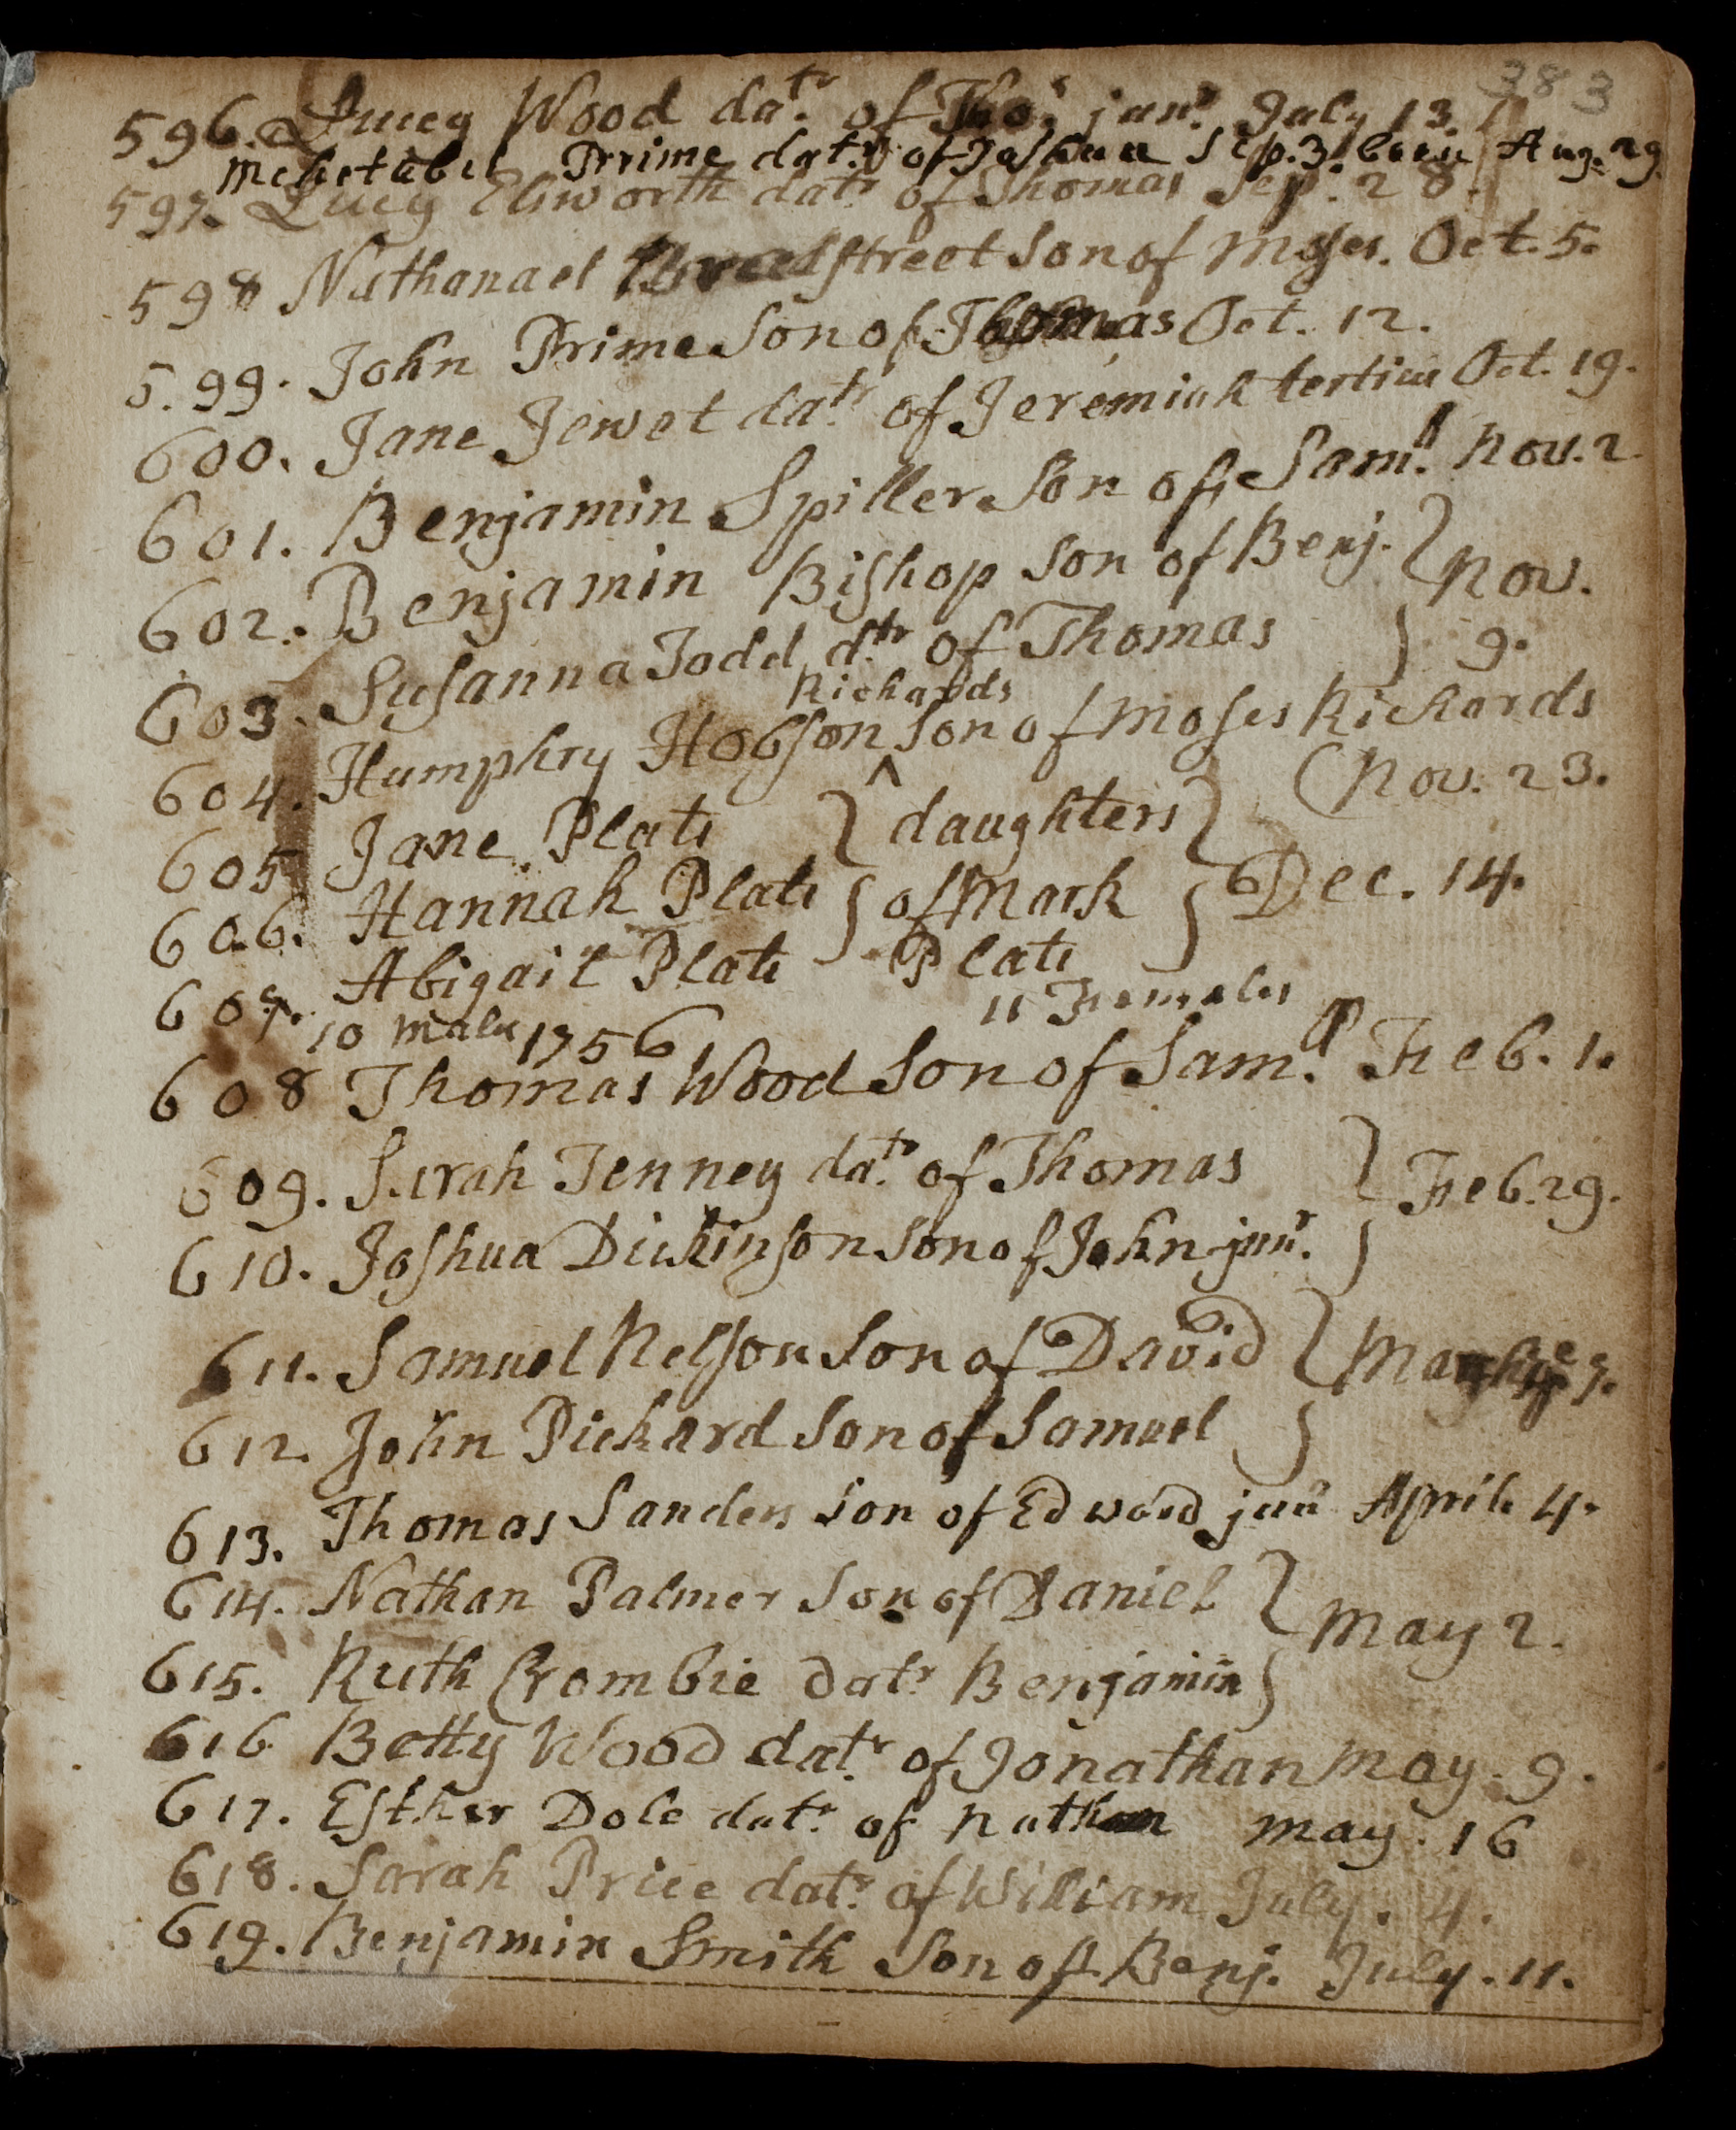 383
596. Lucy Wood datr. of Thos. junr. July 13.
Mehetabel Prime datr. of Joshua Sep. 3. born Aug. 29
597. Lucy Elsworth datr of Thomas Sep. 28.
598 Nathanael Broadstreet Son of Moses. Oct. 5.
599. John Prime Son of Thomas Oct. 12.
600. Jane Jewet datr of Jeremiah tertius Oct. 19.
601. Benjamin Spiller Son of Samll Nov. 2
602. Benjamin Bishop Son of Benj. } Nov.
603. Susanna Todd dtr of Thomas } 9.
Richards
604. Humphry Hobson ^ Son of Moses Richards
(Nov. 23.
605 Jane Plats } daughters }
606. Hannah Plats } of Mark } Dec. 14.
607. Abigail Plats Plats
10 Males 1756 11 Females
608 Thomas Wood Son of Samll Feb. 1.
609. Sarah Tenney datr of Thomas } Feb. 29.
610. Joshua Dickinson Son of John junr. }
611. Samuel Nelson Son of David } March 7.
612. John Pickard Son of Samuel }
613. Thomas Sanders Son of Edward junr April 4.
614. Nathan Palmer Son of Daniel } May 2.
615. Ruth Crombie datr Benjamin }
616 Betty Wood datr of Jonathan May. 9.
617. Esther Dole datr of Nathan May. 16
618. Sarah Price datr of William July. 4.
619. Benjamin Smith Son of Benj. July. 11.